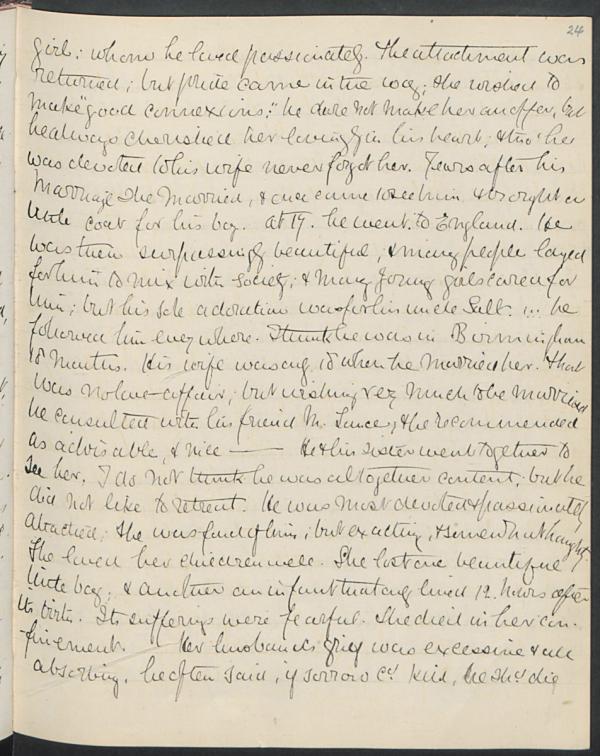 24
girl; whom he loved passionately. The attachment was
returned; but pride came in the way; she wished to
make "good connexions;" he dare not make her an offer, but
he always cherished her lovingly in his heart; & tho' he
was devoted to his wife never forgot her. Years after his
marriage she married, & once came to see him & brought a
little coat for his boy. At 17. he went to England. He
was then surpassingly beautiful, & many people longed
for him to mix with society; & many young girls cared for
him; but his sole adoration was for his uncle Salt. ... he
followed him everywhere. I think he was in Birmingham
18 months. His wife was aug. 18 when he married her. That
was no love-affair; but wishing very much to be married
he consulted with his friend M. & he recommended
as advisable, & nice —— He & his sister went together to
see her. I do not think he was altogether content; but he
did not like to retreat. He was most devoted & passionately
attached; she was fond of him; but exacting, & somewhat haughty
She loved her children well. She lost one beautiful
little boy; & another an infant that only lived 12. hours after
its birth. Its sufferings were fearful. She died in her con-
finement. — Her husband's grief was excessive & all
absorbing. he often said, if sorrow cd kill, he shd die